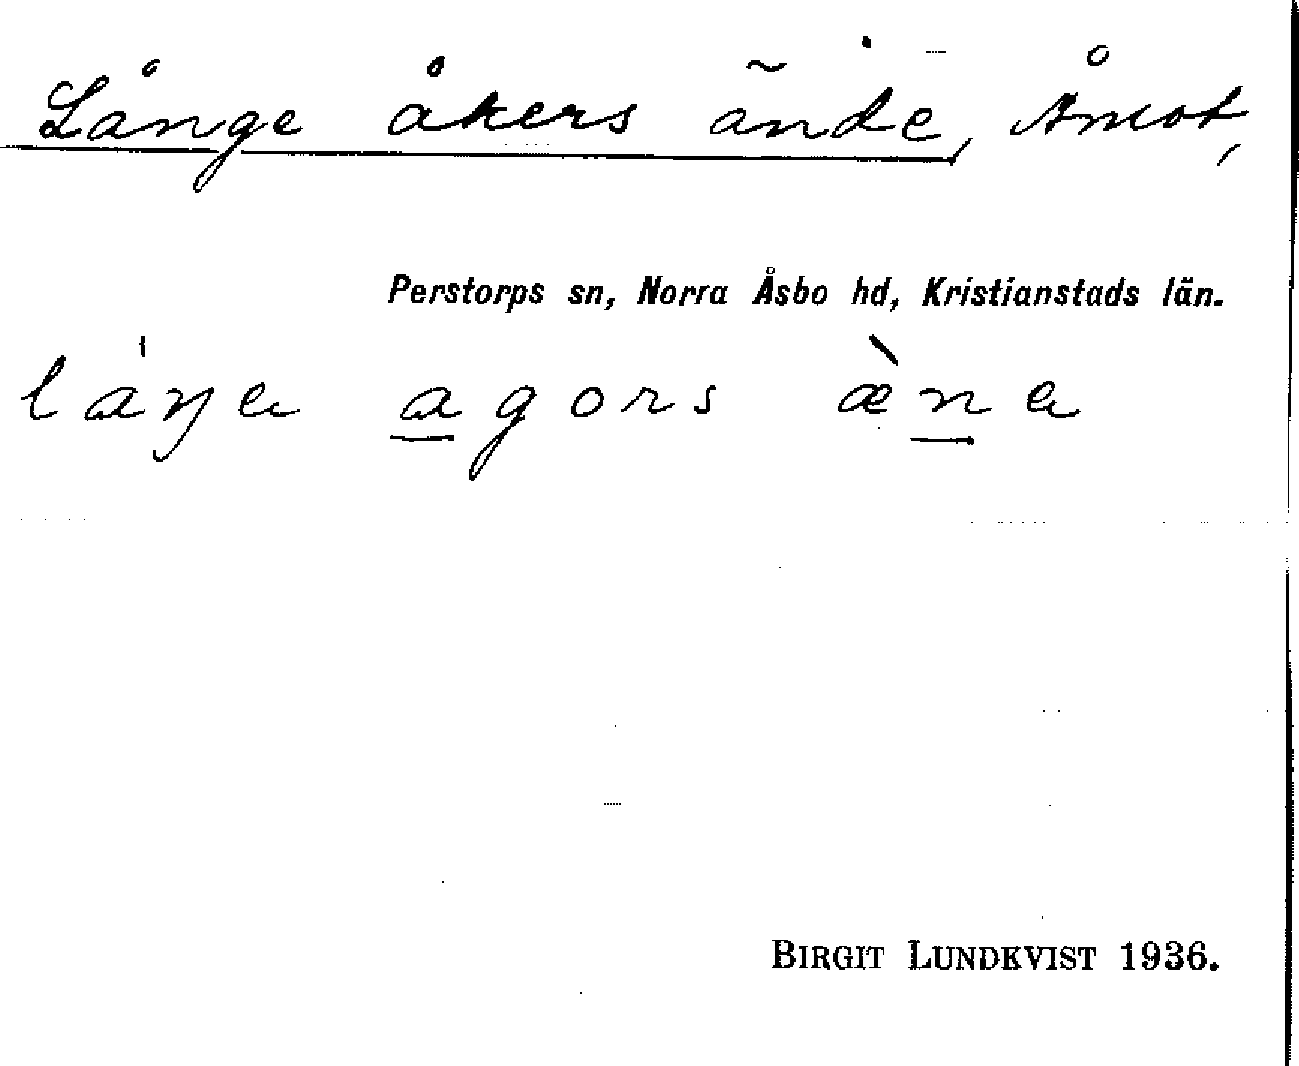 Långe åkers ände, Åmot,
Perstorps sn, Norra Åsbo hd, Kristianstads län.
láŋa agors æ̀na
BIRGIT LUNDKVIST 1936.